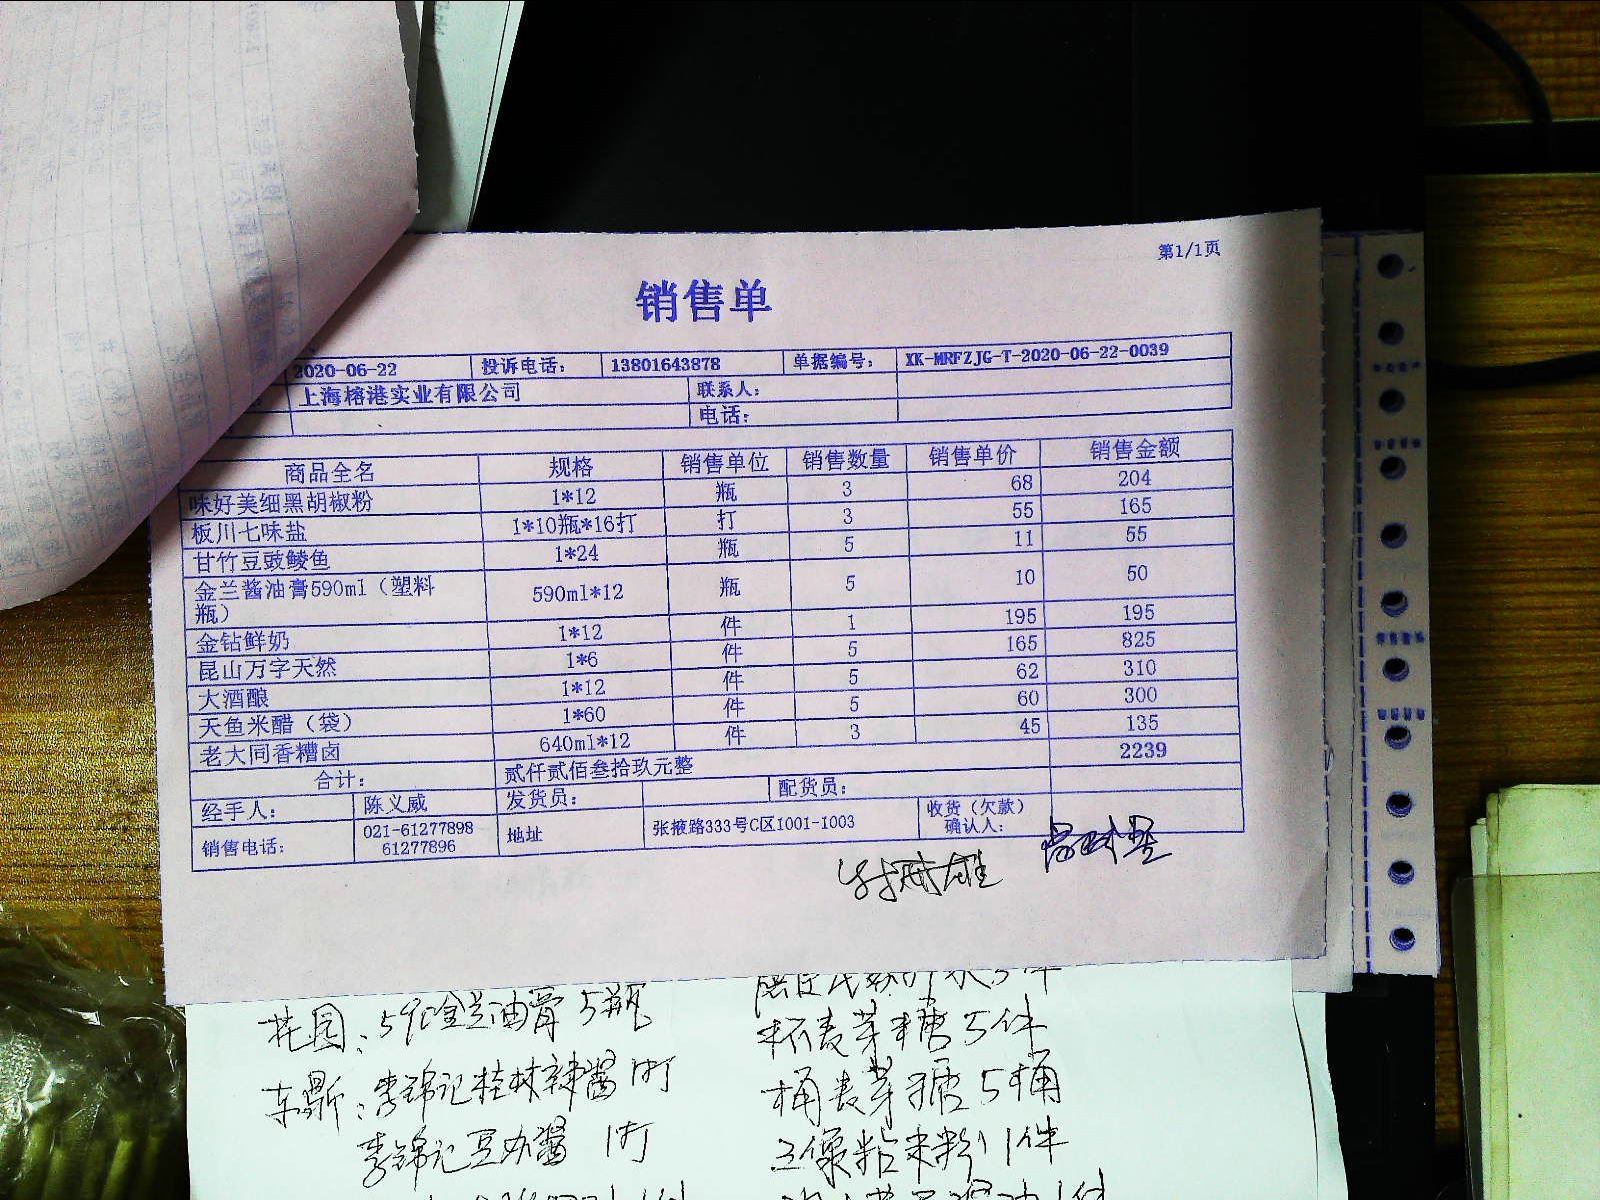 第1/1页
销售单
2020-06-22 投诉电话: 13801643878 单据编号: XK-MRFZJG-T-2020-06-22-0039
上海榕港实业有限公司 联系人:
电话:
商品全名 规格 销售单位 销售数量 销售单价 销售金额
味好美细黑胡椒粉 1*12 瓶 3 68 204
板川七味盐 1*10瓶*16打 打 3 55 165
甘竹豆豉鲮鱼 1*24 瓶 5 11 55
金兰酱油膏590ml（塑料
瓶） 590ml*12 瓶 5 10 50
金钻鲜奶 1*12 件 1 195 195
昆山万字天然 1*6 件 5 165 825
大酒酿 1*12 件 5 62 310
天鱼米醋（袋） 1*60 件 5 60 300
老大同香糟卤 640ml*12 件 3 45 135
合计: 贰仟贰佰叁拾玖元整 2239
经手人: 陈义威 发货员: 配货员:
销售电话: 021-61277898
61277896 地址 张掖路333号C区1001-1003 收货（欠款）
确认人:
花园: 590金兰油膏 5瓶
杯麦芽糖 5件
东鼎: 李锦记桂林辣酱 1打
桶麦芽糖 5桶
李锦记豆瓣酱 1打
三象粘米粉 1件